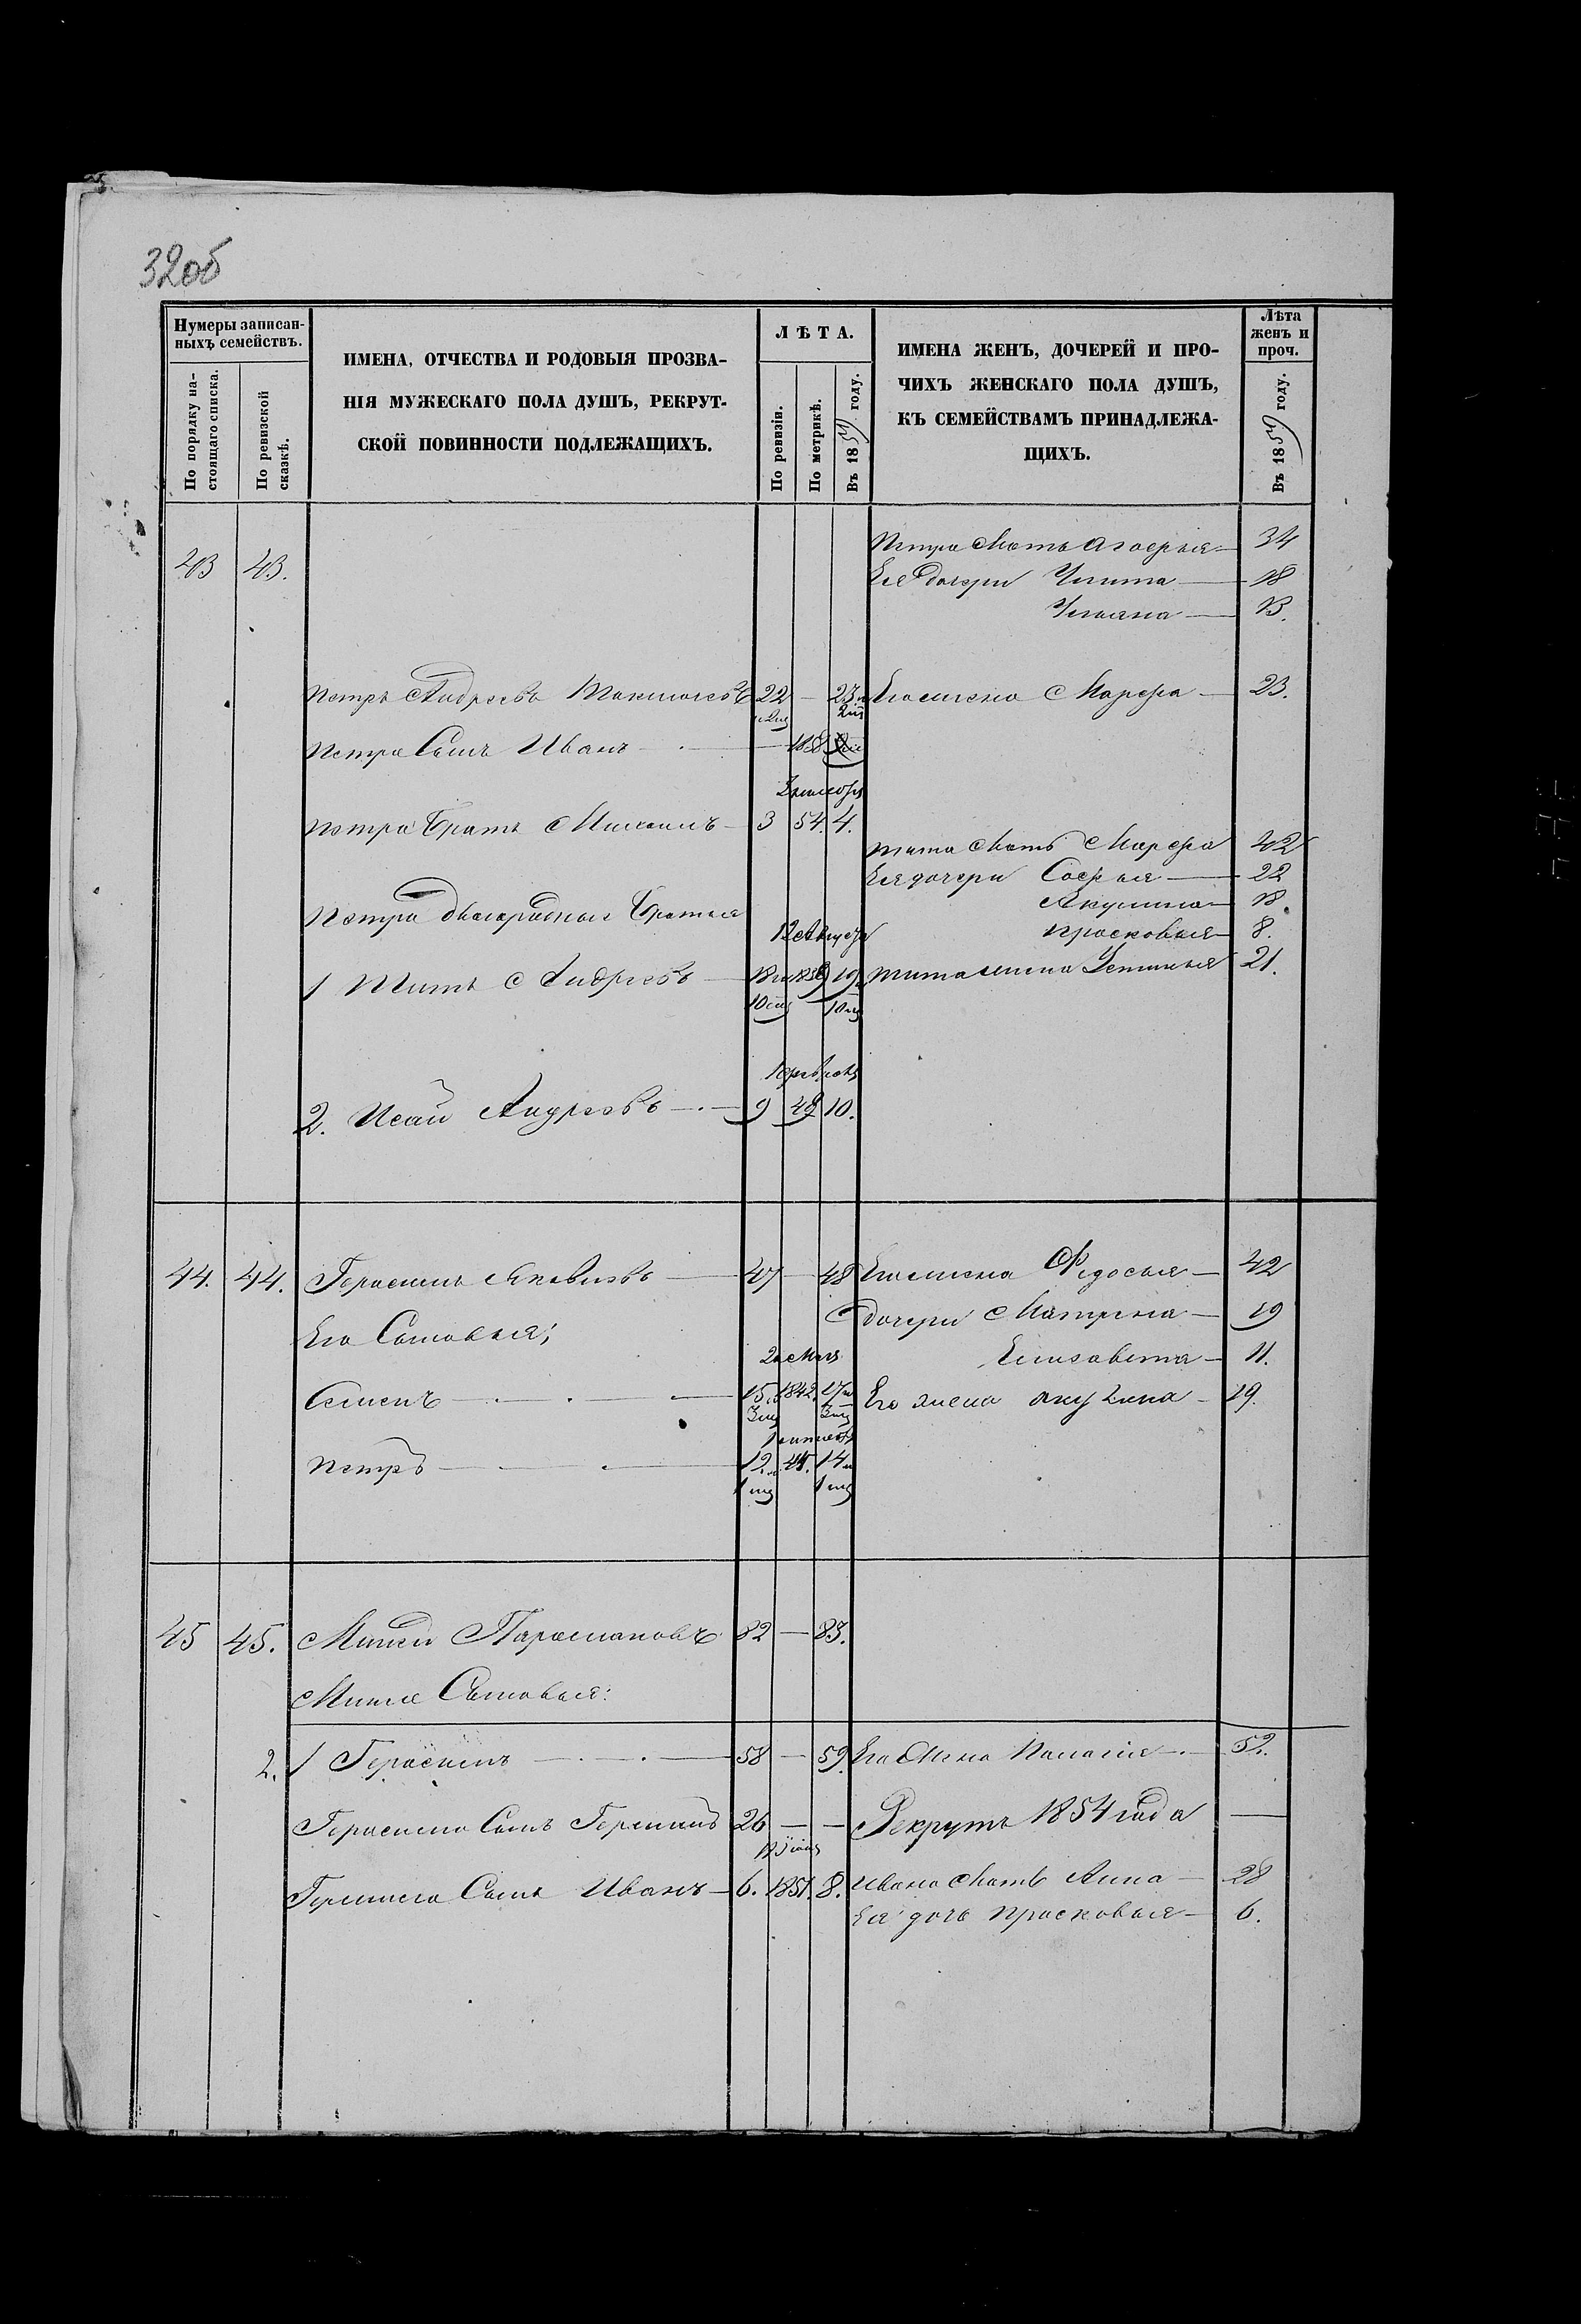 32об
Нумеры записан-
ныхъ семействъ.
По порядку на-
стоящаго списка.
По ревизской
сказкѣ.
ИМЕНА, ОТЧЕСТВА И РОДОВЫЯ ПРОЗВА-
НІЯ МУЖЕСКАГО ПОЛА ДУШЪ, РЕКРУТ-
СКОЙ ПОВИННОСТИ ПОДЛЕЖАЩИХЪ.
ЛѢТА.
По ревизіи.
По метрикѣ.
Въ 1859 году.
ИМЕНА ЖЕНЪ, ДОЧЕРЕЙ И ПРО-
ЧИХЪ ЖЕНСКАГО ПОЛА ДУШЪ,
КЪ СЕМЕЙСТВАМЪ ПРИНАДЛЕЖА-
ЩИХЪ.
Лѣта
женъ и
проч.
Въ 1859 году.
43 43. Петра Мать 34
Ея дочери 18
Ульяна 13.
Петръ Андреевъ 22 — 23 Его жена Марфа 23.
Петра Сынъ Иванъ
Петра Братъ Михаилъ 3 54. 4.
Тита Мать Марфа 42
Ея дочери Софья 22
Акулина 18.
Прасковья 8.
Петра двоюродныя Братья
12 Августа
1 Титъ Андреевъ 19 Тита жена Устинья 21.
2. Исай Андреевъ 9 49 10.
44. 44. Герасимъ Яковлевъ 47 — 48 Его жена Федосья 42
дочери Матрена 19
Его Сыновья;
Елизавета 11.
Семенъ 15 1842. 17 Его жена Акулина 19.
Петръ 12 14
45 45. Михей 82 — 83.
Михея Сыновья:
2. 1 Герасимъ 58 — 59. Его Жена Палагия 52.
Герасима Сынъ 26 — — Рекрутъ 1854 года —
Сынъ Иванъ 6. 1851. 8. Ивана Мать Анна 28
Ея дочь Прасковья 6.